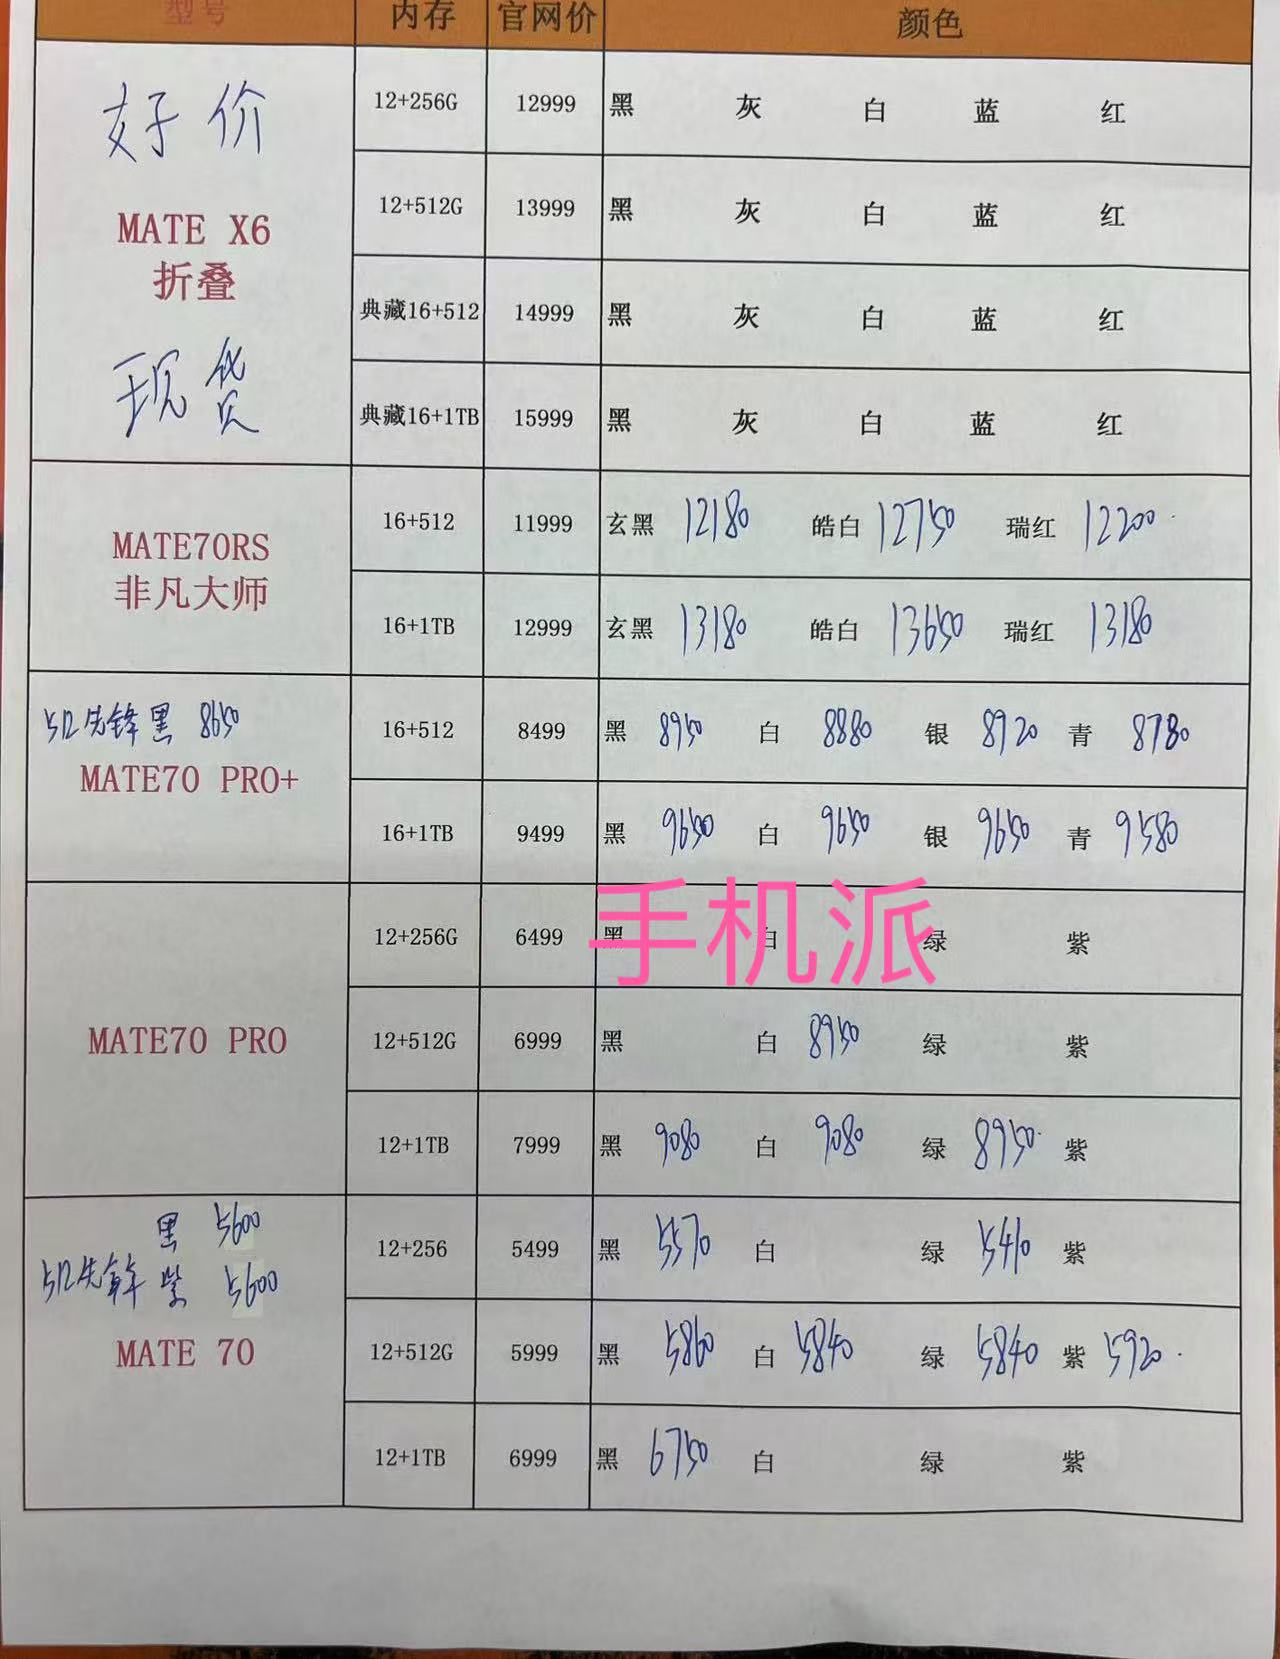 型号 内存 官网价 颜色
好价
MATE X6
折叠
现货
12+256G 12999 黑 灰 白 蓝 红
12+512G 13999 黑 灰 白 蓝 红
典藏16+512 14999 黑 灰 白 蓝 红
典藏16+1TB 15999 黑 灰 白 蓝 红
MATE70RS
非凡大师
16+512 11999 玄黑 12180 皓白 12750 瑞红 12200
16+1TB 12999 玄黑 13180 皓白 13650 瑞红 13180
512先锋黑 8650
MATE70 PRO+
16+512 8499 黑 8950 白 8880 银 8920 青 8780
16+1TB 9499 黑 9650 白 9650 银 9650 青 9580
手机派
MATE70 PRO
12+256G 6499 黑 白 绿 紫
12+512G 6999 黑 白 8950 绿 紫
12+1TB 7999 黑 9080 白 9080 绿 8950 紫
黑 5600
512先锋 紫 5600
MATE 70
12+256 5499 黑 5570 白 绿 5410 紫
12+512G 5999 黑 5860 白 5840 绿 5840 紫 5920
12+1TB 6999 黑 6750 白 绿 紫